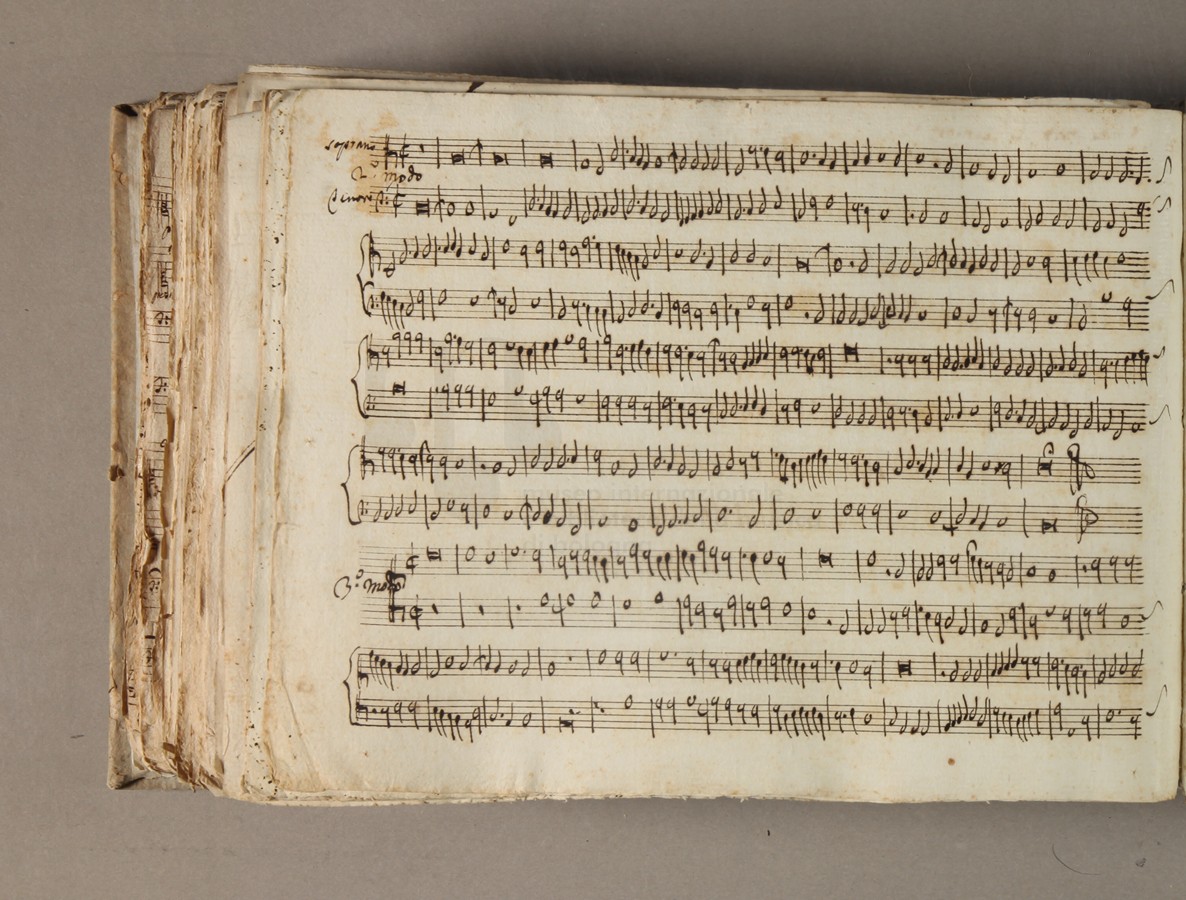 soprano
2º modo
Tenore
3º modo